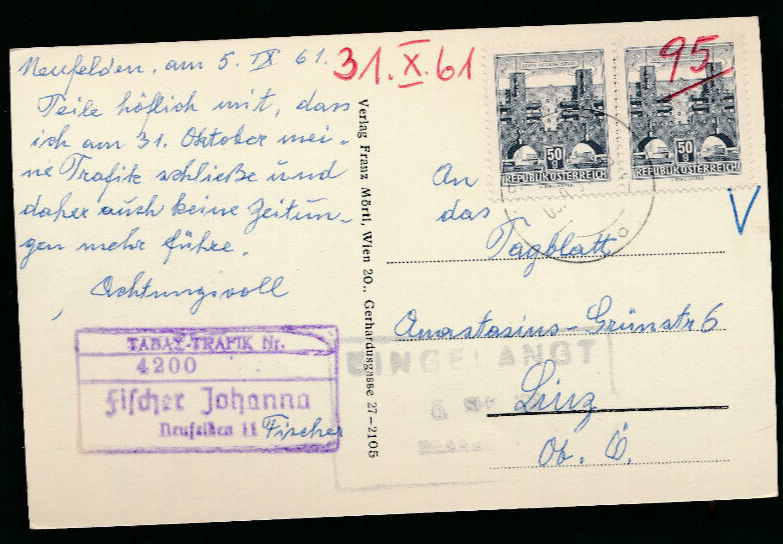 Neufelden, am 5. IX 61.
Teile höflich mit, dass
ich am 31. Oktober mei-
ne Trafik schließe und
daher auch keine Zeitun-
gen mehr führe.
Achtungsvoll
TABAK-TRAFIK Nr.
4200
Fischer Johanna
Neufelden 11
Fischer
31.X.61
Verlag Franz Mörtl, Wien 20., Gerhardusgasse 27-2105
95
50 g
REPUBLIK ÖSTERREICH
50 g
REPUBLIK ÖSTERREICH
V
An
das
Tagblatt
Anastasius-Grünstr 6
Linz
Ob. Ö.
EINGELANGT
6